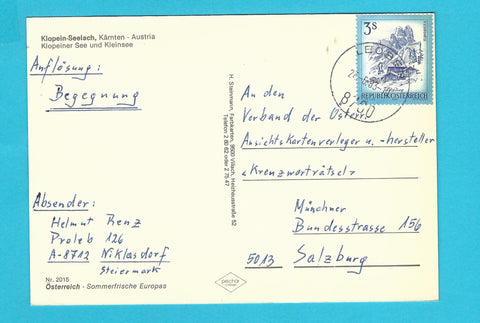 Klopein-Seelach, Kärnten - Austria
Klopeiner See und Kleinsee
Auflösung:
Begegnung
Absender:
Helmut Renz
Proleb 126
A-8712 Niklasdorf
Steiermark
Nr. 2015
Österreich - Sommerfrische Europas
H. Steinmann, Farbkarten, 9500 Villach, Heidnaustraße 52
Telefon 2 60 62 oder 2 75 47
pechar
3S
REPUBLIK ÖSTERREICH
LEOBEN
8700
An den
Verband der Österr.
Ansichtskartenverleger u. -hersteller
«Kreuzworträtsel»
Münchner
Bundesstrasse 156
5013 Salzburg